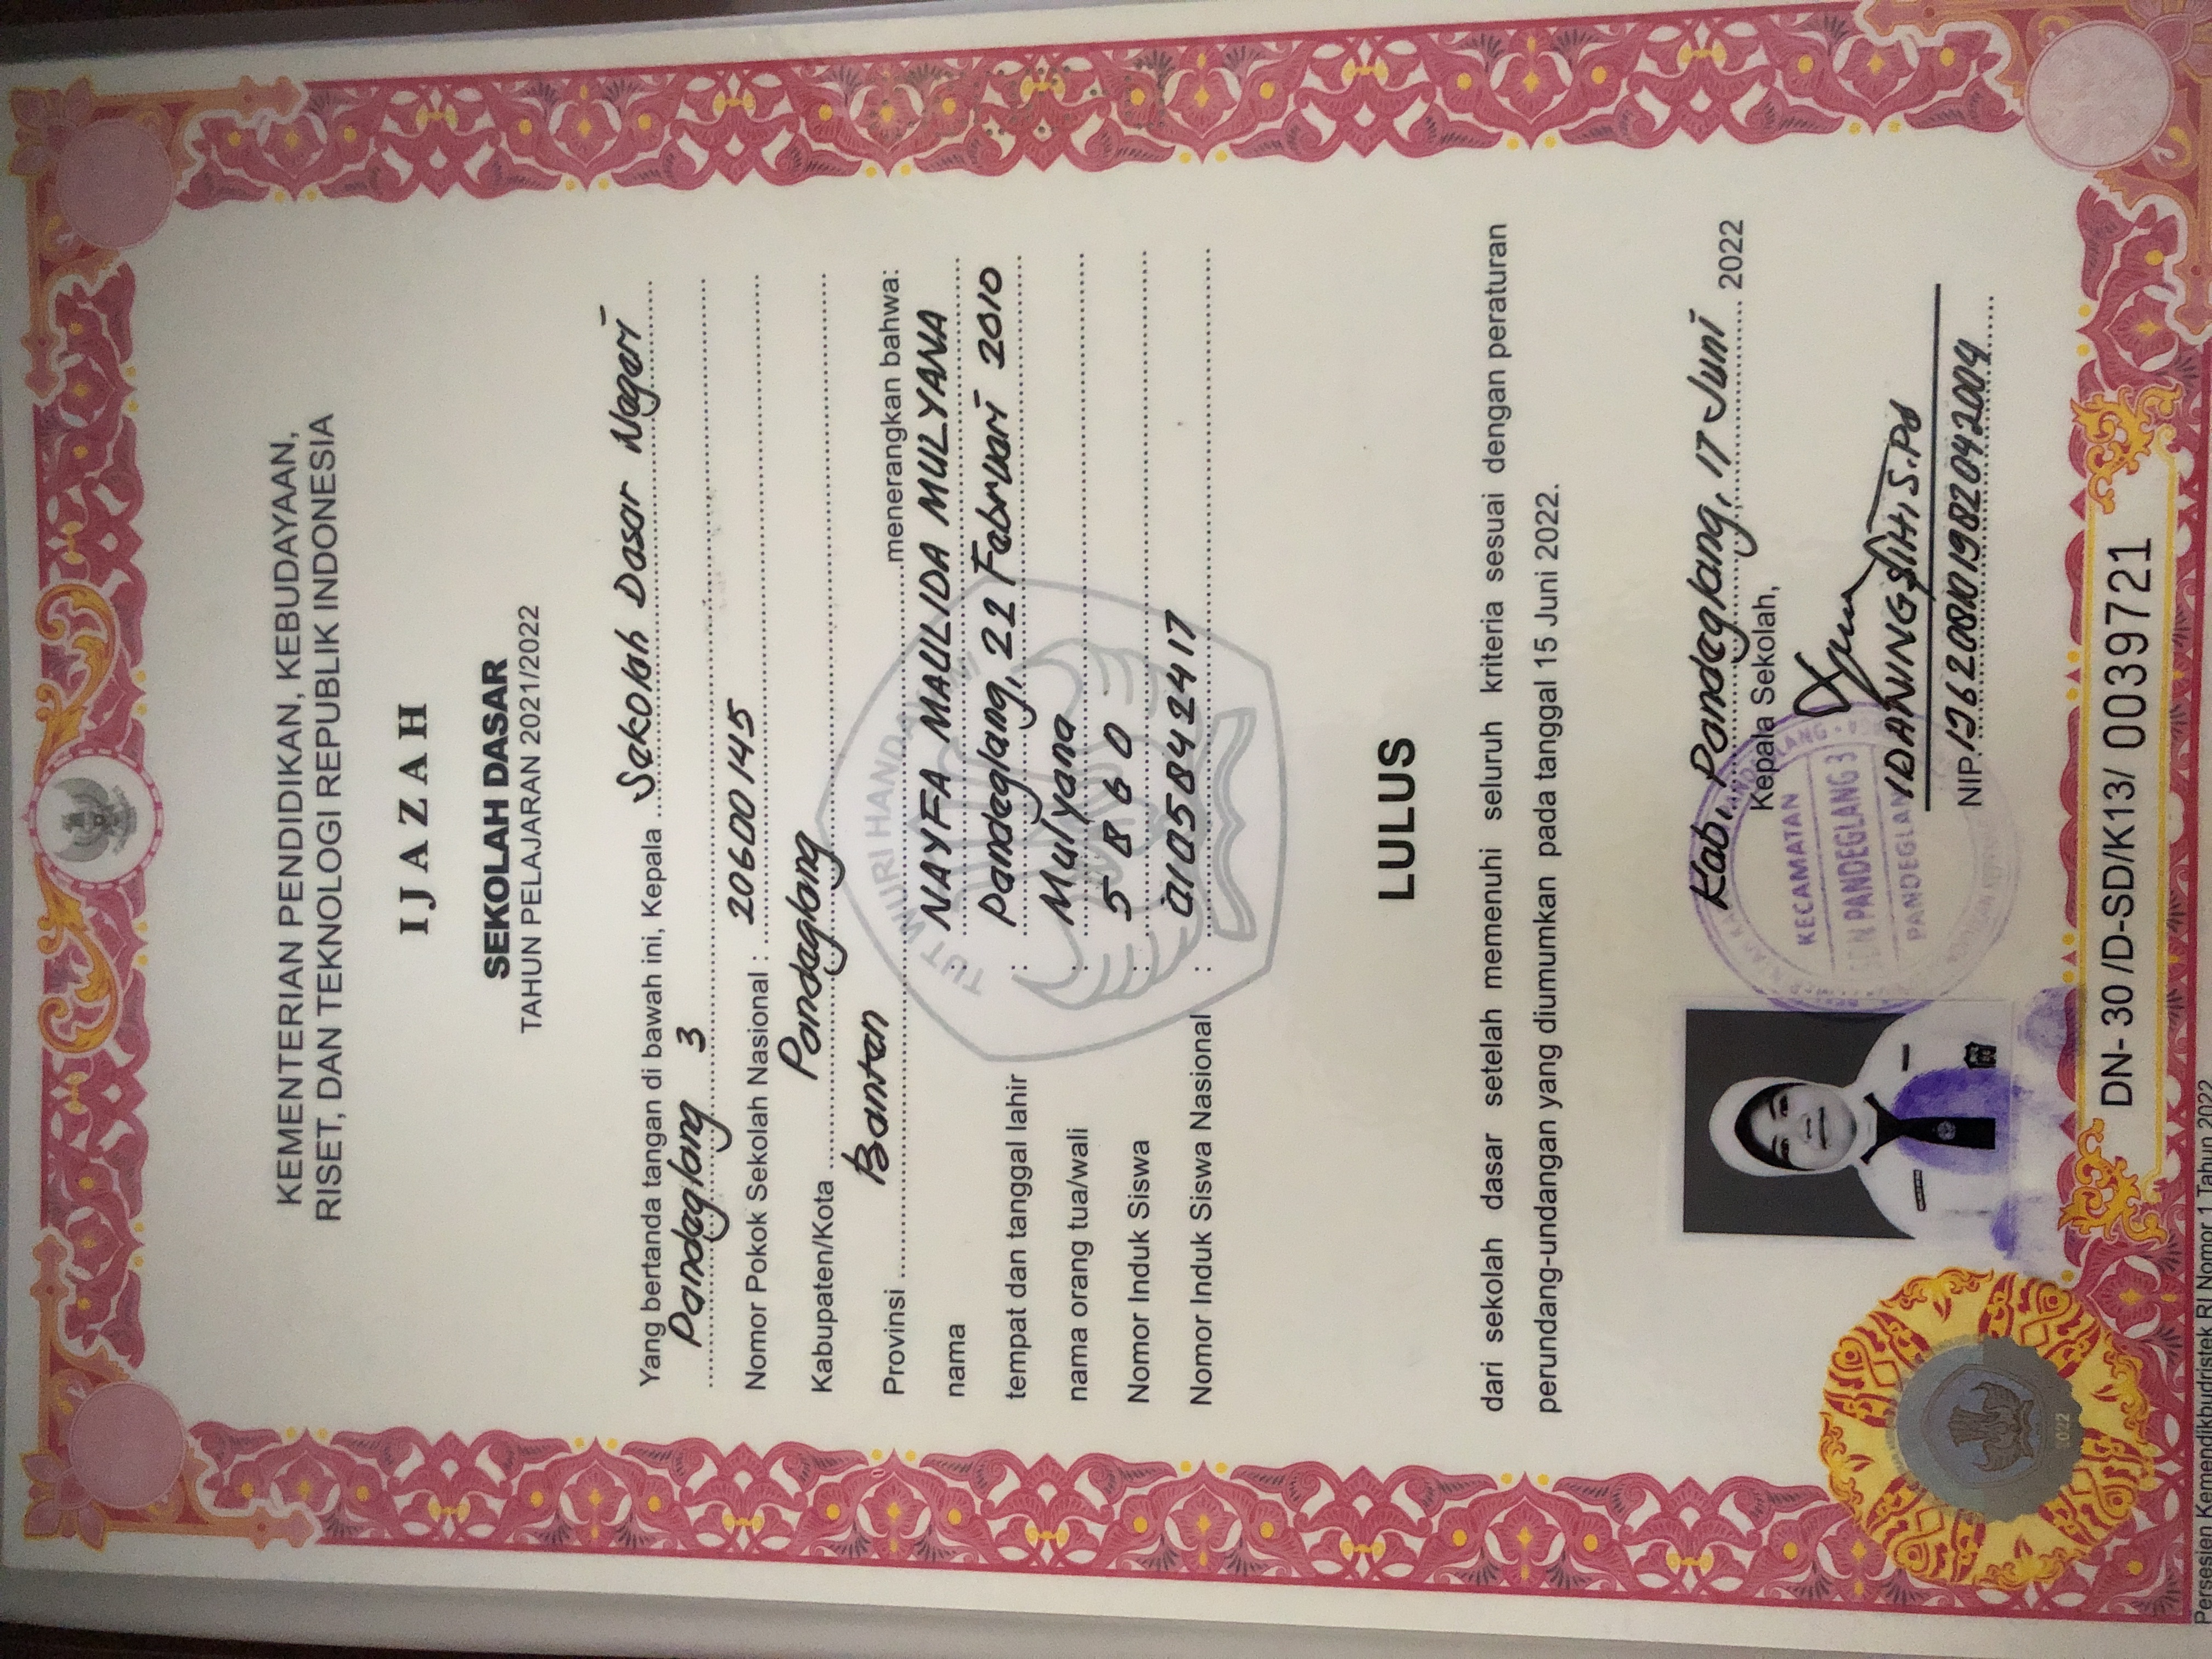 KEMENTERIAN PENDIDIKAN, KEBUDAYAAN,
RISET, DAN TEKNOLOGI REPUBLIK INDONESIA
IJAZAH
SEKOLAH DASAR
TAHUN PELAJARAN 2021/2022
Yang bertanda tangan di bawah ini, Kepala Sekolah Dasar Negeri
Pandeglang 3
Nomor Pokok Sekolah Nasional : 20600145
Kabupaten/Kota Pandeglang
Provinsi Banten menerangkan bahwa:
nama : NAYFA MAULIDA MULYANA
tempat dan tanggal lahir : Pandeglang, 22 Februari 2010
nama orang tua/wali : Mulyana
Nomor Induk Siswa : 5860
Nomor Induk Siswa Nasional : 0105842417
TUT WURI HANDAYANI
LULUS
dari sekolah dasar setelah memenuhi seluruh kriteria sesuai dengan peraturan
perundang-undangan yang diumumkan pada tanggal 15 Juni 2022.
Kab. Pandeglang, 17 Juni 2022
Kepala Sekolah,
KECAMATAN
SDN PANDEGLANG 3
PANDEGLANG
IDANINGSIH, S.Pd
NIP. 196208101982042004
2022
DN- 30 /D-SD/K13/ 0039721
Persesjen Kemendikbudristek RI Nomor 1 Tahun 2022